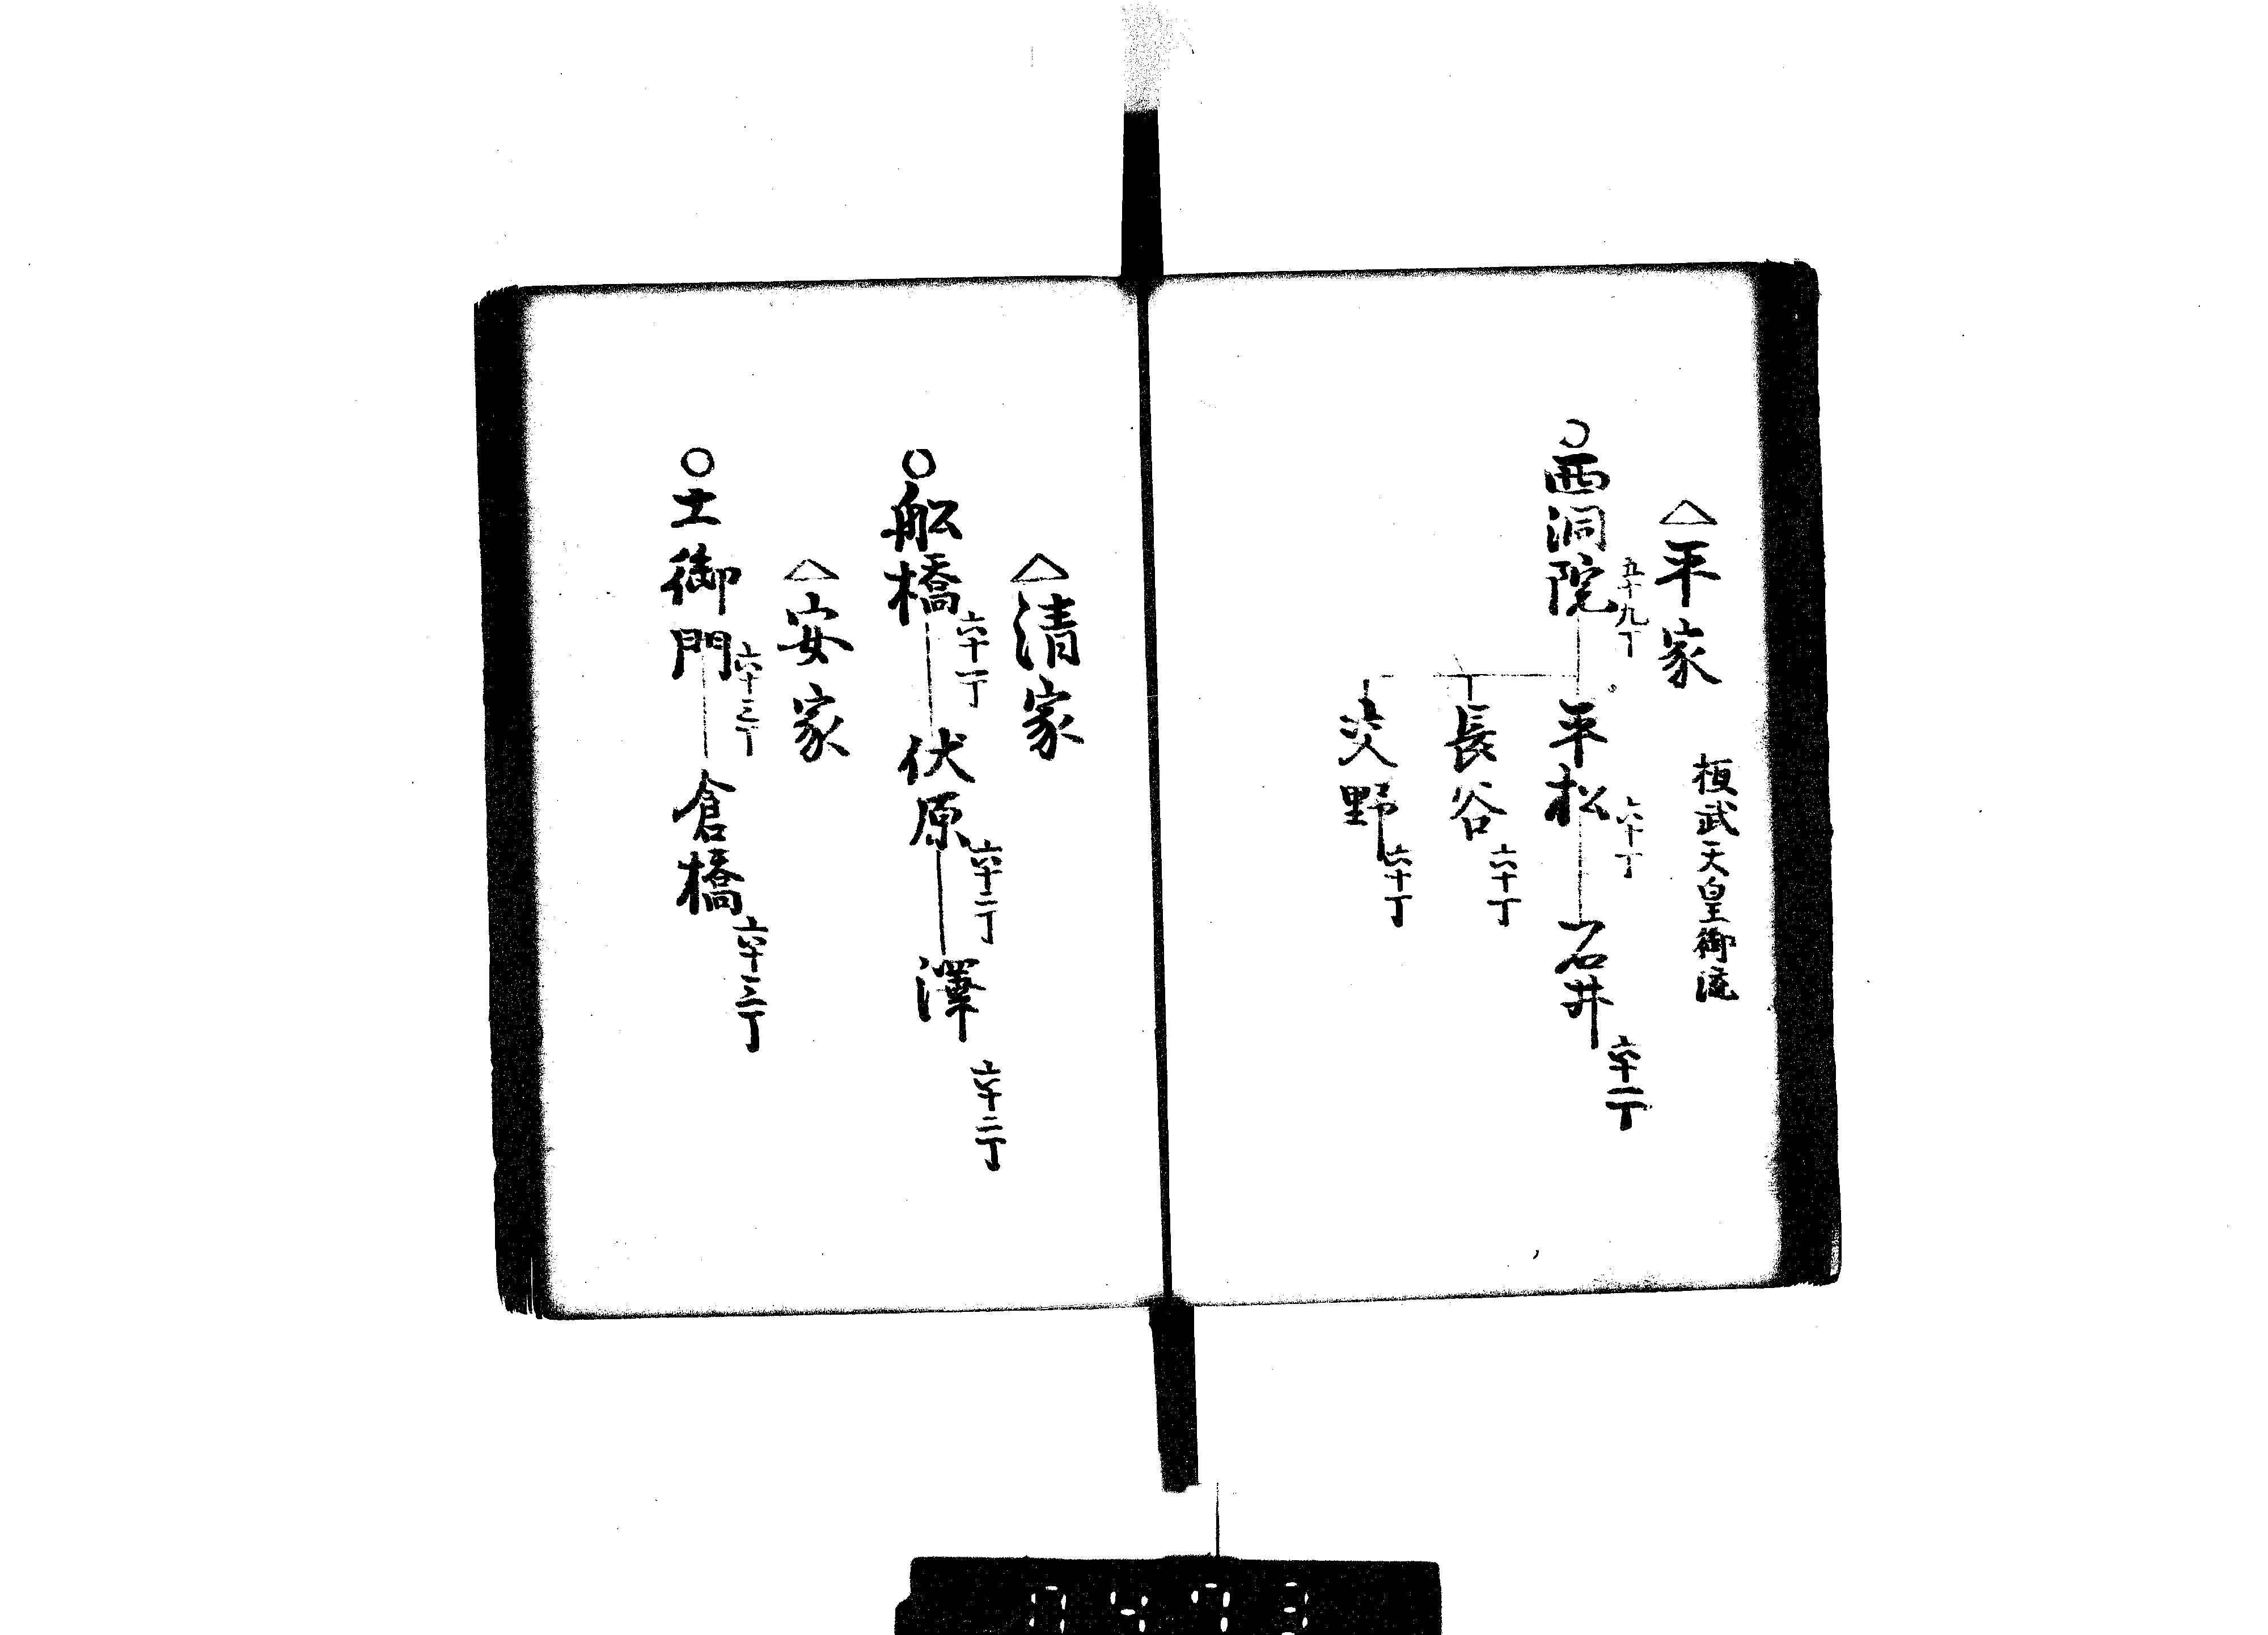 △平家　桓武天皇御流
○西洞院 五十九丁
平松 六十丁
石井 六十一丁
長谷 六十丁
交野 六十丁
△清家
○舩橋 六十一丁
伏原 六十二丁
澤 六十二丁
△安家
○土御門 六十三丁
倉橋 六十三丁